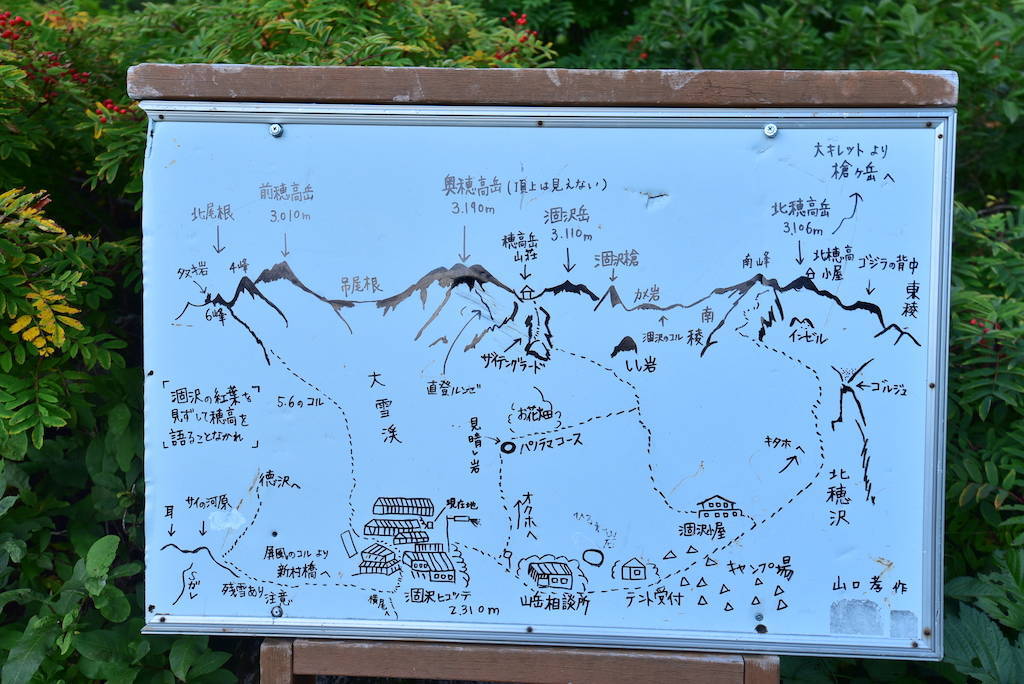 大キレットより
槍ヶ岳へ
前穂高岳
3.010m
奥穂高岳(頂上は見えない)
3.190m
北尾根
涸沢岳
3.110m
北穂高岳
3,106m
穂高岳
山荘
涸沢槍
南峰
北穂高
小屋
ゴジラの背中
東稜
4峰
6峰
吊尾根
カメ岩
涸沢のコル
南稜
インゼル
ザイテングラード
しし岩
直登ルンゼ
ゴルジュ
「涸沢の紅葉を
見ずして穂高を
語ることなかれ」
5.6のコル
大雪渓
お花畑
見晴し岩
パノラマコース
キタホ
北穂沢
徳沢へ
サイの河原
耳
現在地
オクホへ
涸沢小屋
屏風のコルより
新村橋へ
残雪あり注意
横尾へ
涸沢ヒュッテ
2,310m
山岳相談所
テント受付
キャンプ場
山口孝作